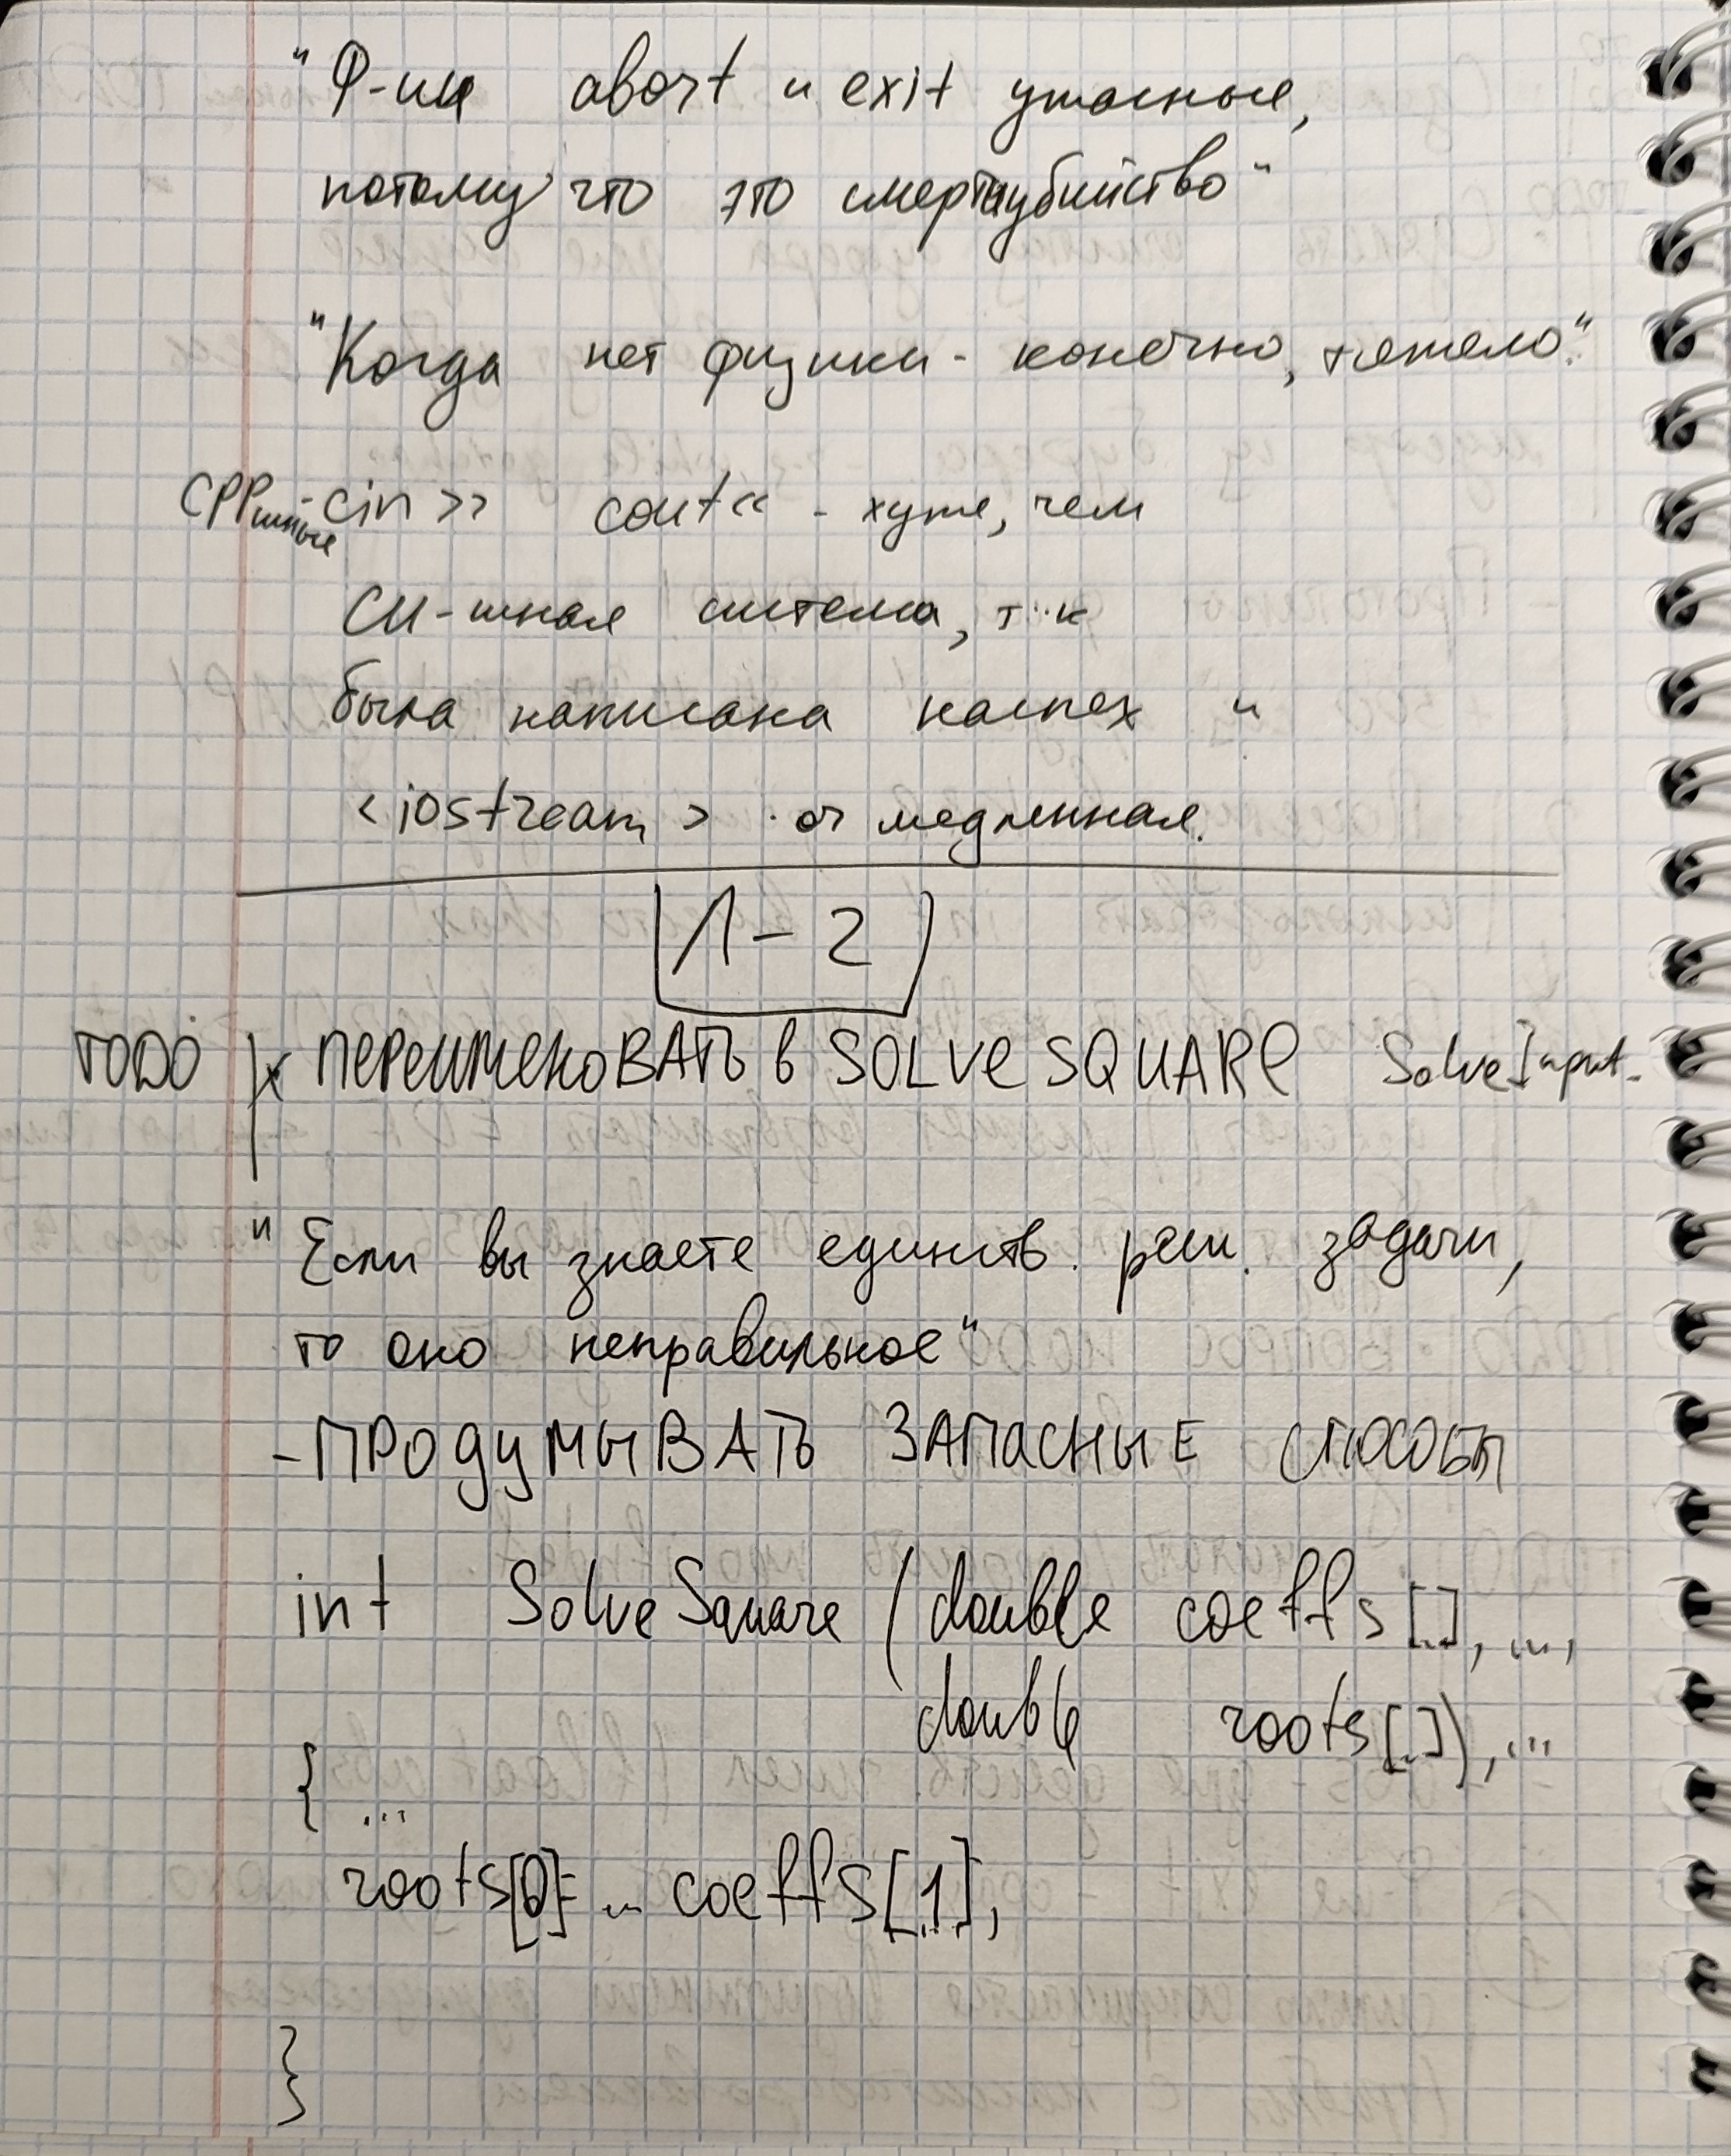 "Ф-ии abort и exit ужасные,
потому что это смертоубийство"
"Когда нет физики - конечно, тяжело".
CPPшные - cin >> cout << - хуже, чем
СИ-шная система, т.к
была написана наспех и
<iostream> оч медленная.
Л-2
TODO * ПЕРЕИМЕНОВАТЬ в SOLVESQUARE SolveInput.
"Если вы знаете единств. реш. задачи,
то оно неправильное"
- ПРОДУМЫВАТЬ ЗАПАСНЫЕ СПОСОБЫ
int SolveSquare (double coeffs[..], ...,
double roots[..]), ...
{ ...
roots[0] = ... coeffs[1];
}